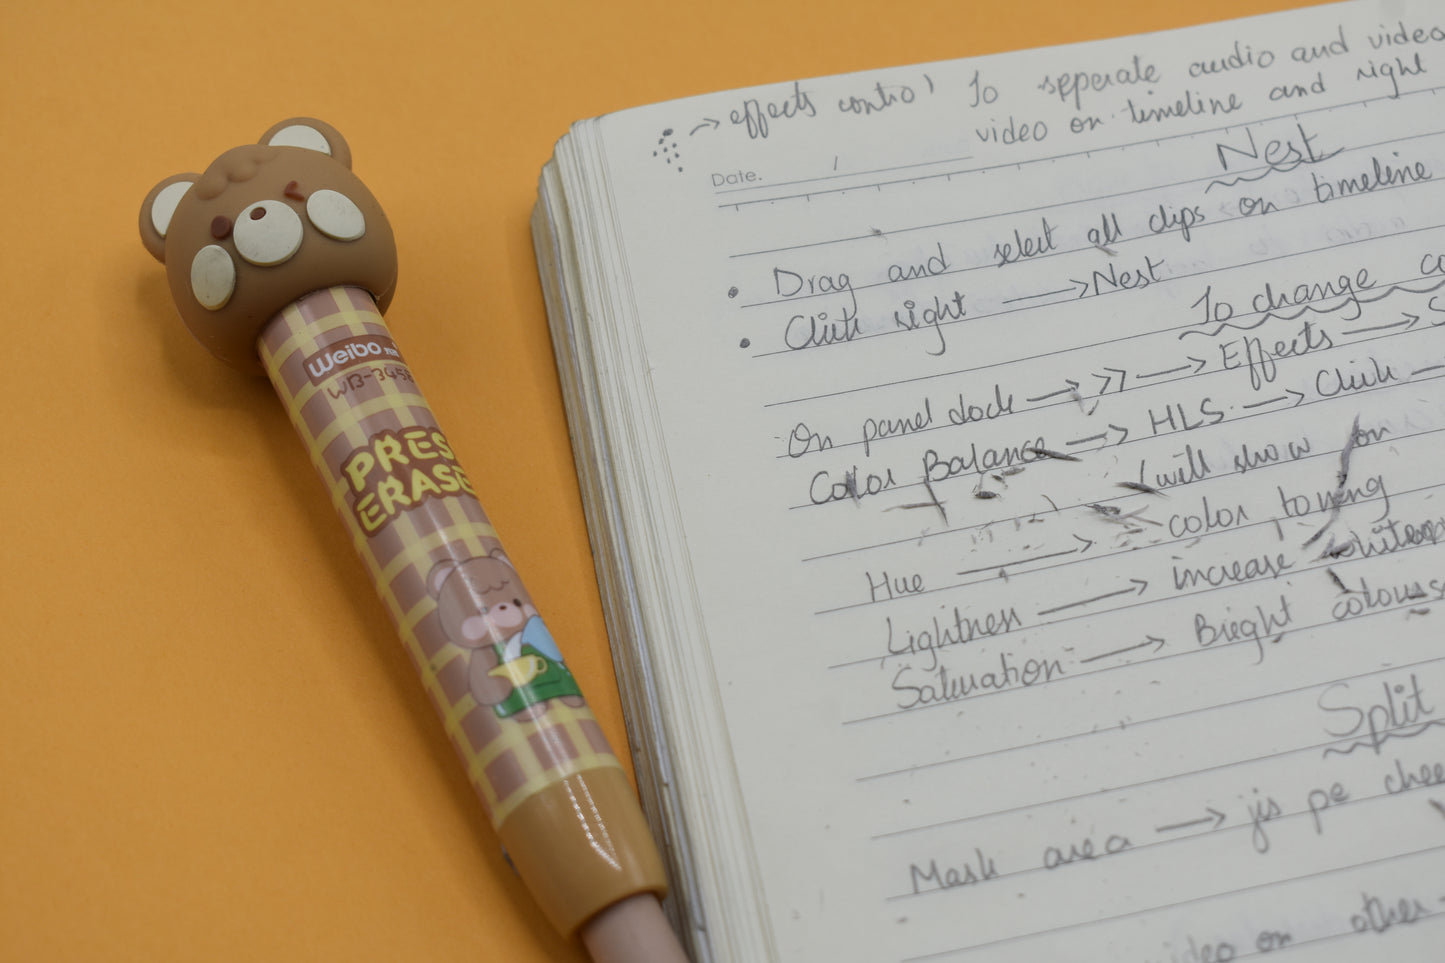 Weibo
WB-3458
PRESS
ERASE
effects control To sepperate audio and video
video on timeline and right
Date.
Nest
• Drag and select all clips on timeline
• Click right → Nest
To change co
On panel dock → >> → Effects → S
Color Balance → HLS → Click →
(will show on
Hue → color toning
Lightness → increase
Saturation → Bright colours
Split
Mask area → jis pe chee
video on other